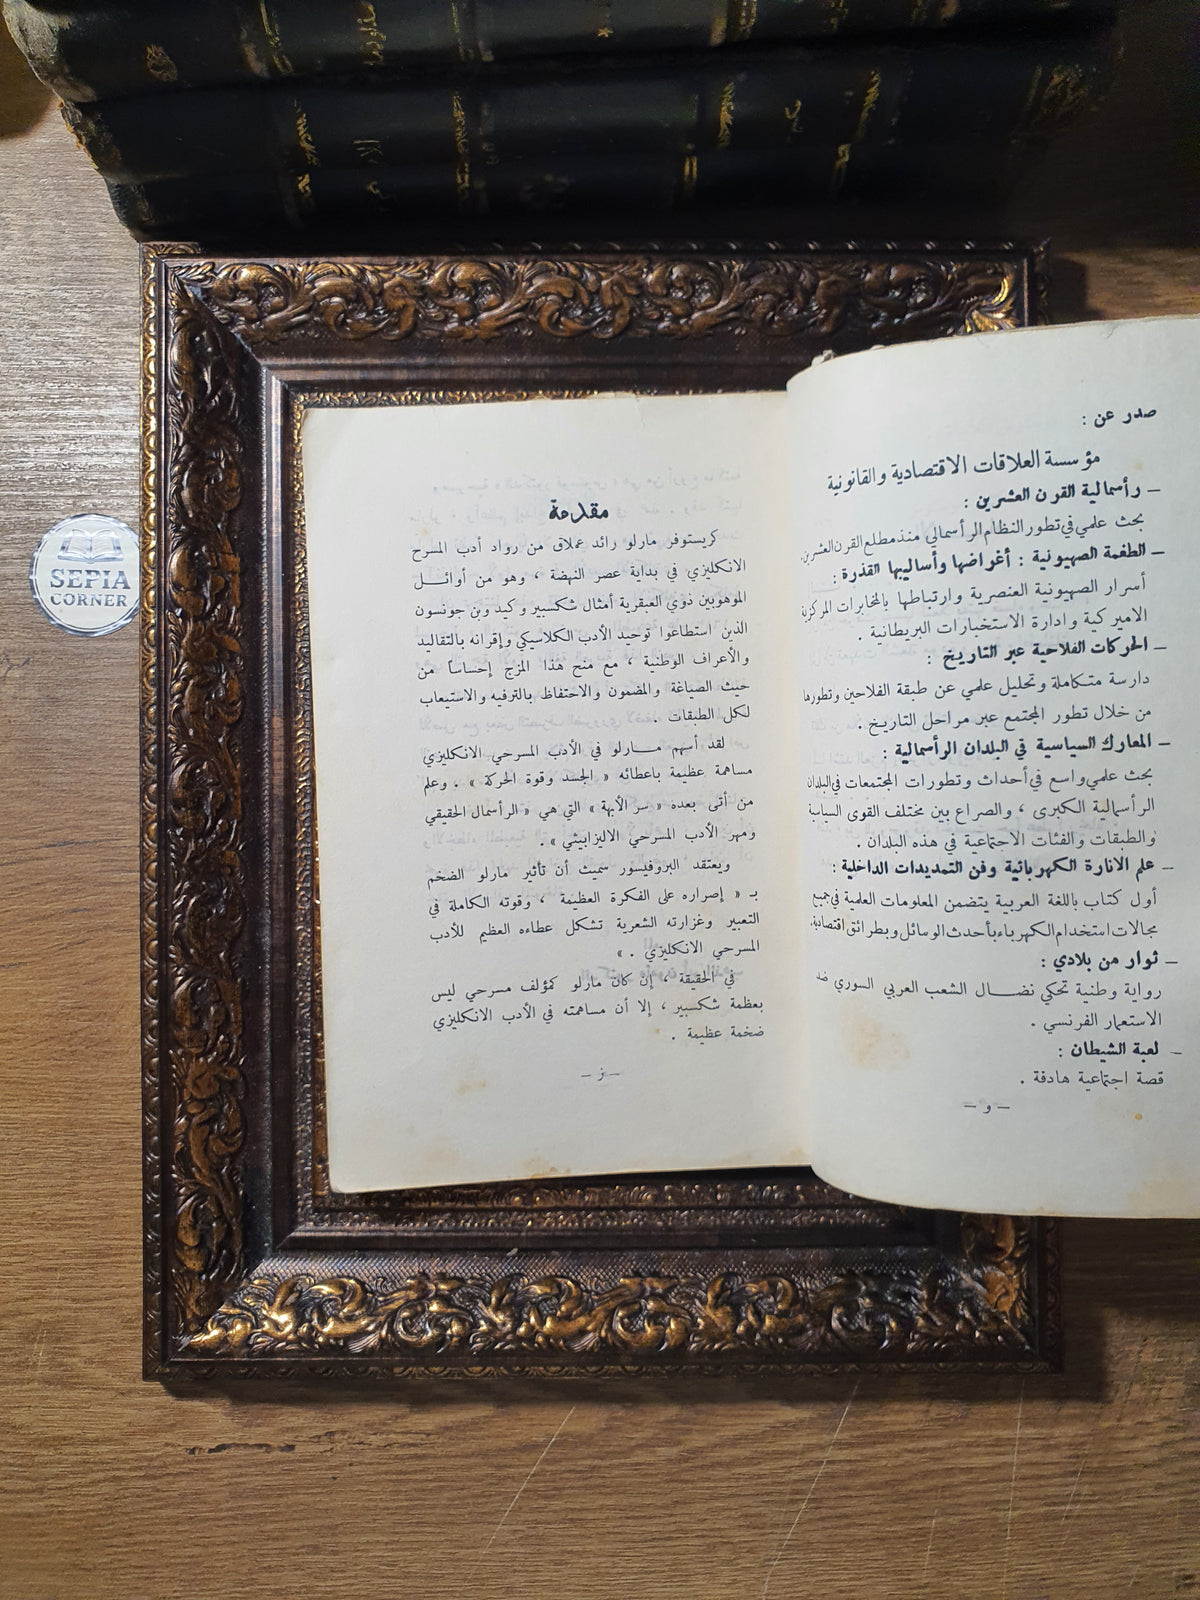 صدر عن :
مؤسسة العلاقات الاقتصادية والقانونية
– رأسمالية القرن العشرين :
بحث علمي في تطور النظام الرأسمالي منذ مطلع القرن العشرين.
– الطغمة الصهيونية : أغراضها وأساليبها القذرة :
أسرار الصهيونية العنصرية وارتباطها بالمخابرات المركزية
الاميركية وادارة الاستخبارات البريطانية .
– الحركات الفلاحية عبر التاريخ :
دارسة متكاملة وتحليل علمي عن طبقة الفلاحين وتطورها
من خلال تطور المجتمع عبر مراحل التاريخ .
– المعارك السياسية في البلدان الرأسمالية :
بحث علمي واسع في أحداث وتطورات المجتمعات في البلدان
الرأسمالية الكبرى ، والصراع بين مختلف القوى السياسية
والطبقات والفئات الاجتماعية في هذه البلدان .
– علم الانارة الكهربائية وفن التمديدات الداخلية :
أول كتاب باللغة العربية يتضمن المعلومات العلمية في جميع
مجالات استخدام الكهرباء بأحدث الوسائل وبطرائق اقتصادية.
– ثوار من بلادي :
رواية وطنية تحكي نضـــال الشعب العربي السوري ضد
الاستعمار الفرنسي .
– لعبة الشيطان :
قصة اجتماعية هادفة .
– و –
مقدمة
كريستوفر مارلو رائد عملاق من رواد أدب المسرح
الانكليزي في بداية عصر النهضة ، وهو من أوائـــل
الموهوبين ذوي العبقرية أمثال شكسبير وكيد وبن جونسون
الذين استطاعوا توحيد الأدب الكلاسيكي وإقرانه بالتقاليد
والأعراف الوطنية ، مع منح هذا المزج إحساساً من
حيث الصياغة والمضمون والاحتفاظ بالترفيه والاستيعاب
لكل الطبقات .
لقد أسهم مـــارلو في الأدب المسرحي الانكليزي
مساهمة عظيمة باعطائه « الجسد وقوة الحركة » . وعلم
من أتى بعده « سر الأبهة » التي هي « الرأسمال الحقيقي
ومهر الأدب المسرحي الاليزابيثي » .
ويعتقد البروفيسور سميث أن تأثير مارلو الضخم
بـ « إصراره على الفكرة العظيمة ، وقوته الكاملة في
التعبير وغزارته الشعرية تشكل عطاءه العظيم للأدب
المسرحي الانكليزي . »
في الحقيقة ، إن كان مارلو كمؤلف مسرحي ليس
بعظمة شكسبير ، إلا أن مساهمته في الأدب الانكليزي
ضخمة عظيمة .
– ز –
SEPIA
CORNER